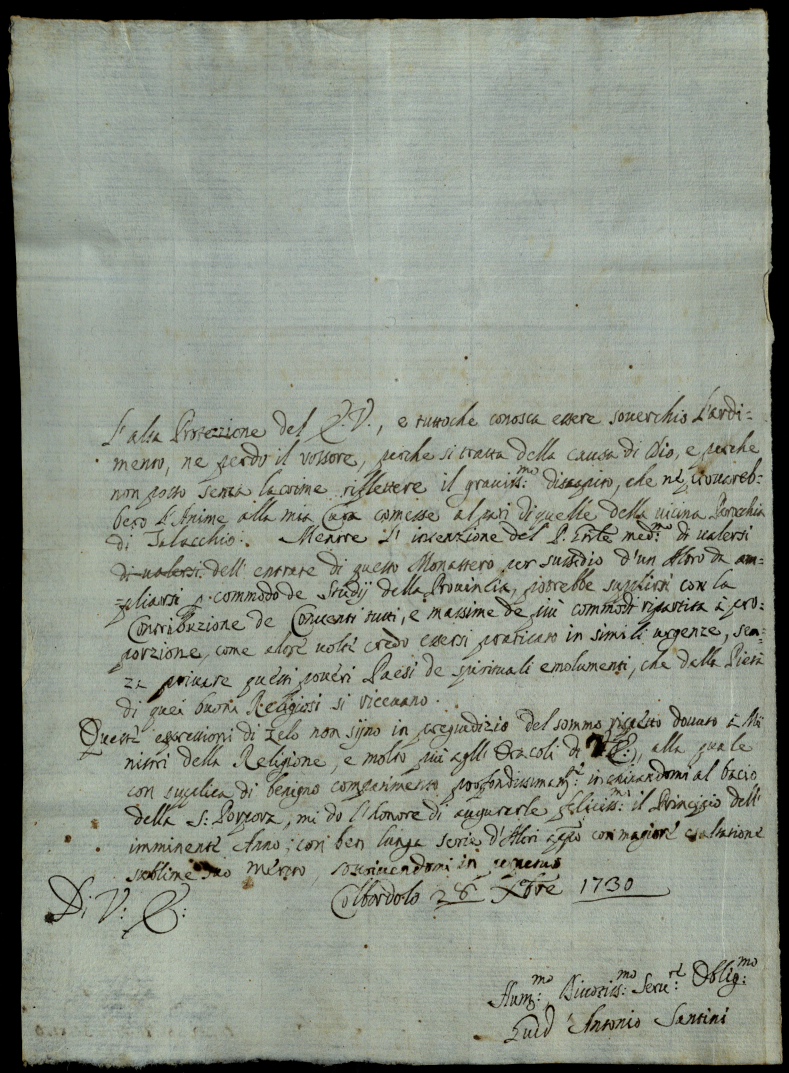 l'alta Protezzione del E: V:, e tuttoche conosca essere souerchio l'ardi=
mento, ne perdo il rossore, perche si tratta della causa di Dio, e perche
non posso senza lacrime riflettere il grauiss:mo disaspiro, che ne prouereb-
bero l'Anime alla mia Cura comesse al pari di quelle della vicina Parochia
di Talacchio: Mentre l'intenzione del P: med:mo di ualersi
di ualersi dell'entrate di questo Monastero per sussidio d'un Altro da am=
=pliarsi p commodo de Studij della Prouincia, potrebbe supplirsi con la
Contribuzione de Conuenti tutti, e massime de più commodi ripartita à pro:
porzione, come altre uolte credo essersi praticato in simili urgenze, sen=
za priuare questi poueri Paesi de spirituali emolumenti, che dalla Pietà
di quei buoni Religiosi si riceuano.
Queste espressioni di zelo non sijno in pregiudizio del sommo rispetto douuto à Mi
nistri della Religione, e molto più agli Oracoli di V: E:, alla quale
con supplica di benigno compatimento profondissimam:te inchinandomi al bacio
della S: Porpora, mi do l'honore di augurarle feliciss:mo il Principio dell'
imminente Anno; con ben lunga serie d'Altri con magiore esaltatione
sublime suo merito, soscriuendomi in
Di V: E:
Colbordolo 28 Xbre 1730
Hum:mo Diuotiss:mo Seru:re Oblig:mo
Antonio Santini